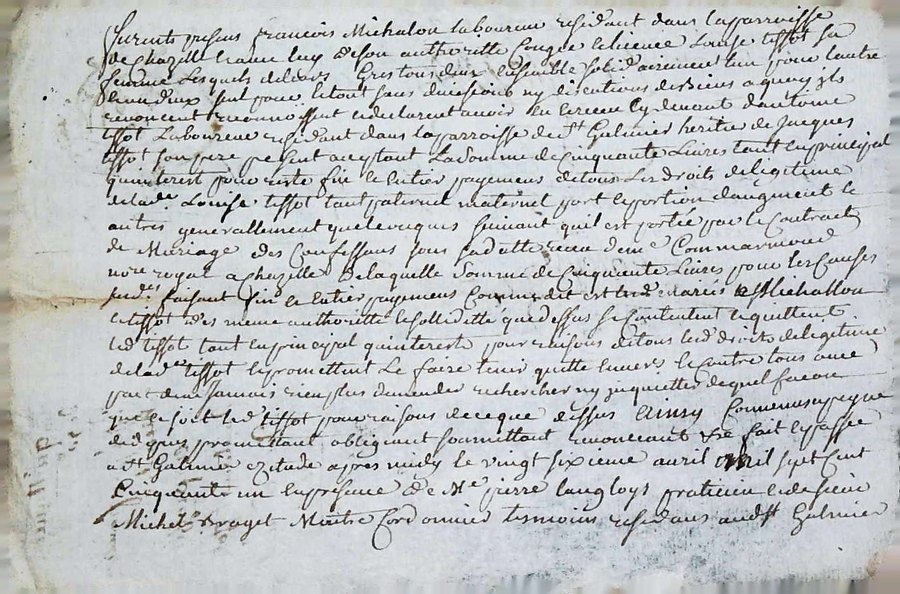 furent presens françois Michalon laboureur residant dans la parroisse
de chazelle &amp; avec luy de son authoritté Congée et licence Louise tissot sa
femme Lesquels de leurs Grés tous deux ensemble solidairement l'un pour l'autre
chacun d'eux seul pour le tout sans division ny discutions de Biens a quoy ils
renoncent reconnoissent et declarent avoir eu et receu cy devant d'antoine
tissot Laboureur residant dans la parroisse de st Galmier heritier de Jacques
tissot son pere present acceptant La somme de cinquante Livres tant en principal
qu'interest pour reste fin et entier payement de tous Les droits de legitime
de lade Louise tissot tant paternel maternel part et portion d'augment et
autres generallement quelconques suivant qu'il est portée par le Contract
de Mariage des Confessans sous sa datte receu de me Commarmond
nore royal a chazelle De laquelle somme de Cinquante Livres pour les causes
susdes faisant fin et entier payement Comme dit est lesd mariés Michallon
et tissot de même authoritté et sollidité que dessus se Contentent et quittent
led tissot tant en principal qu'interests pour raisons de tous lesd droits de legitime
de lade tissot et promettent Le faire tenir quitte envers et contre tous avec
pact de ne jamais rien plus demander rechercher ny inquietter de quel facon
que ce soit led tissot pour raisons de ce que dessus Ainsy Convenus a peyne
de depens promettant obligeant soumettant renonceant &amp;c fait et passé
a st Galmier etude apres midy le vingt sixieme avril mil sept Cent
Cinquante un en presence de Me pierre langloys praticien et de sieur
Michel Maitre Cordonnier tesmoins residans aud st Galmier